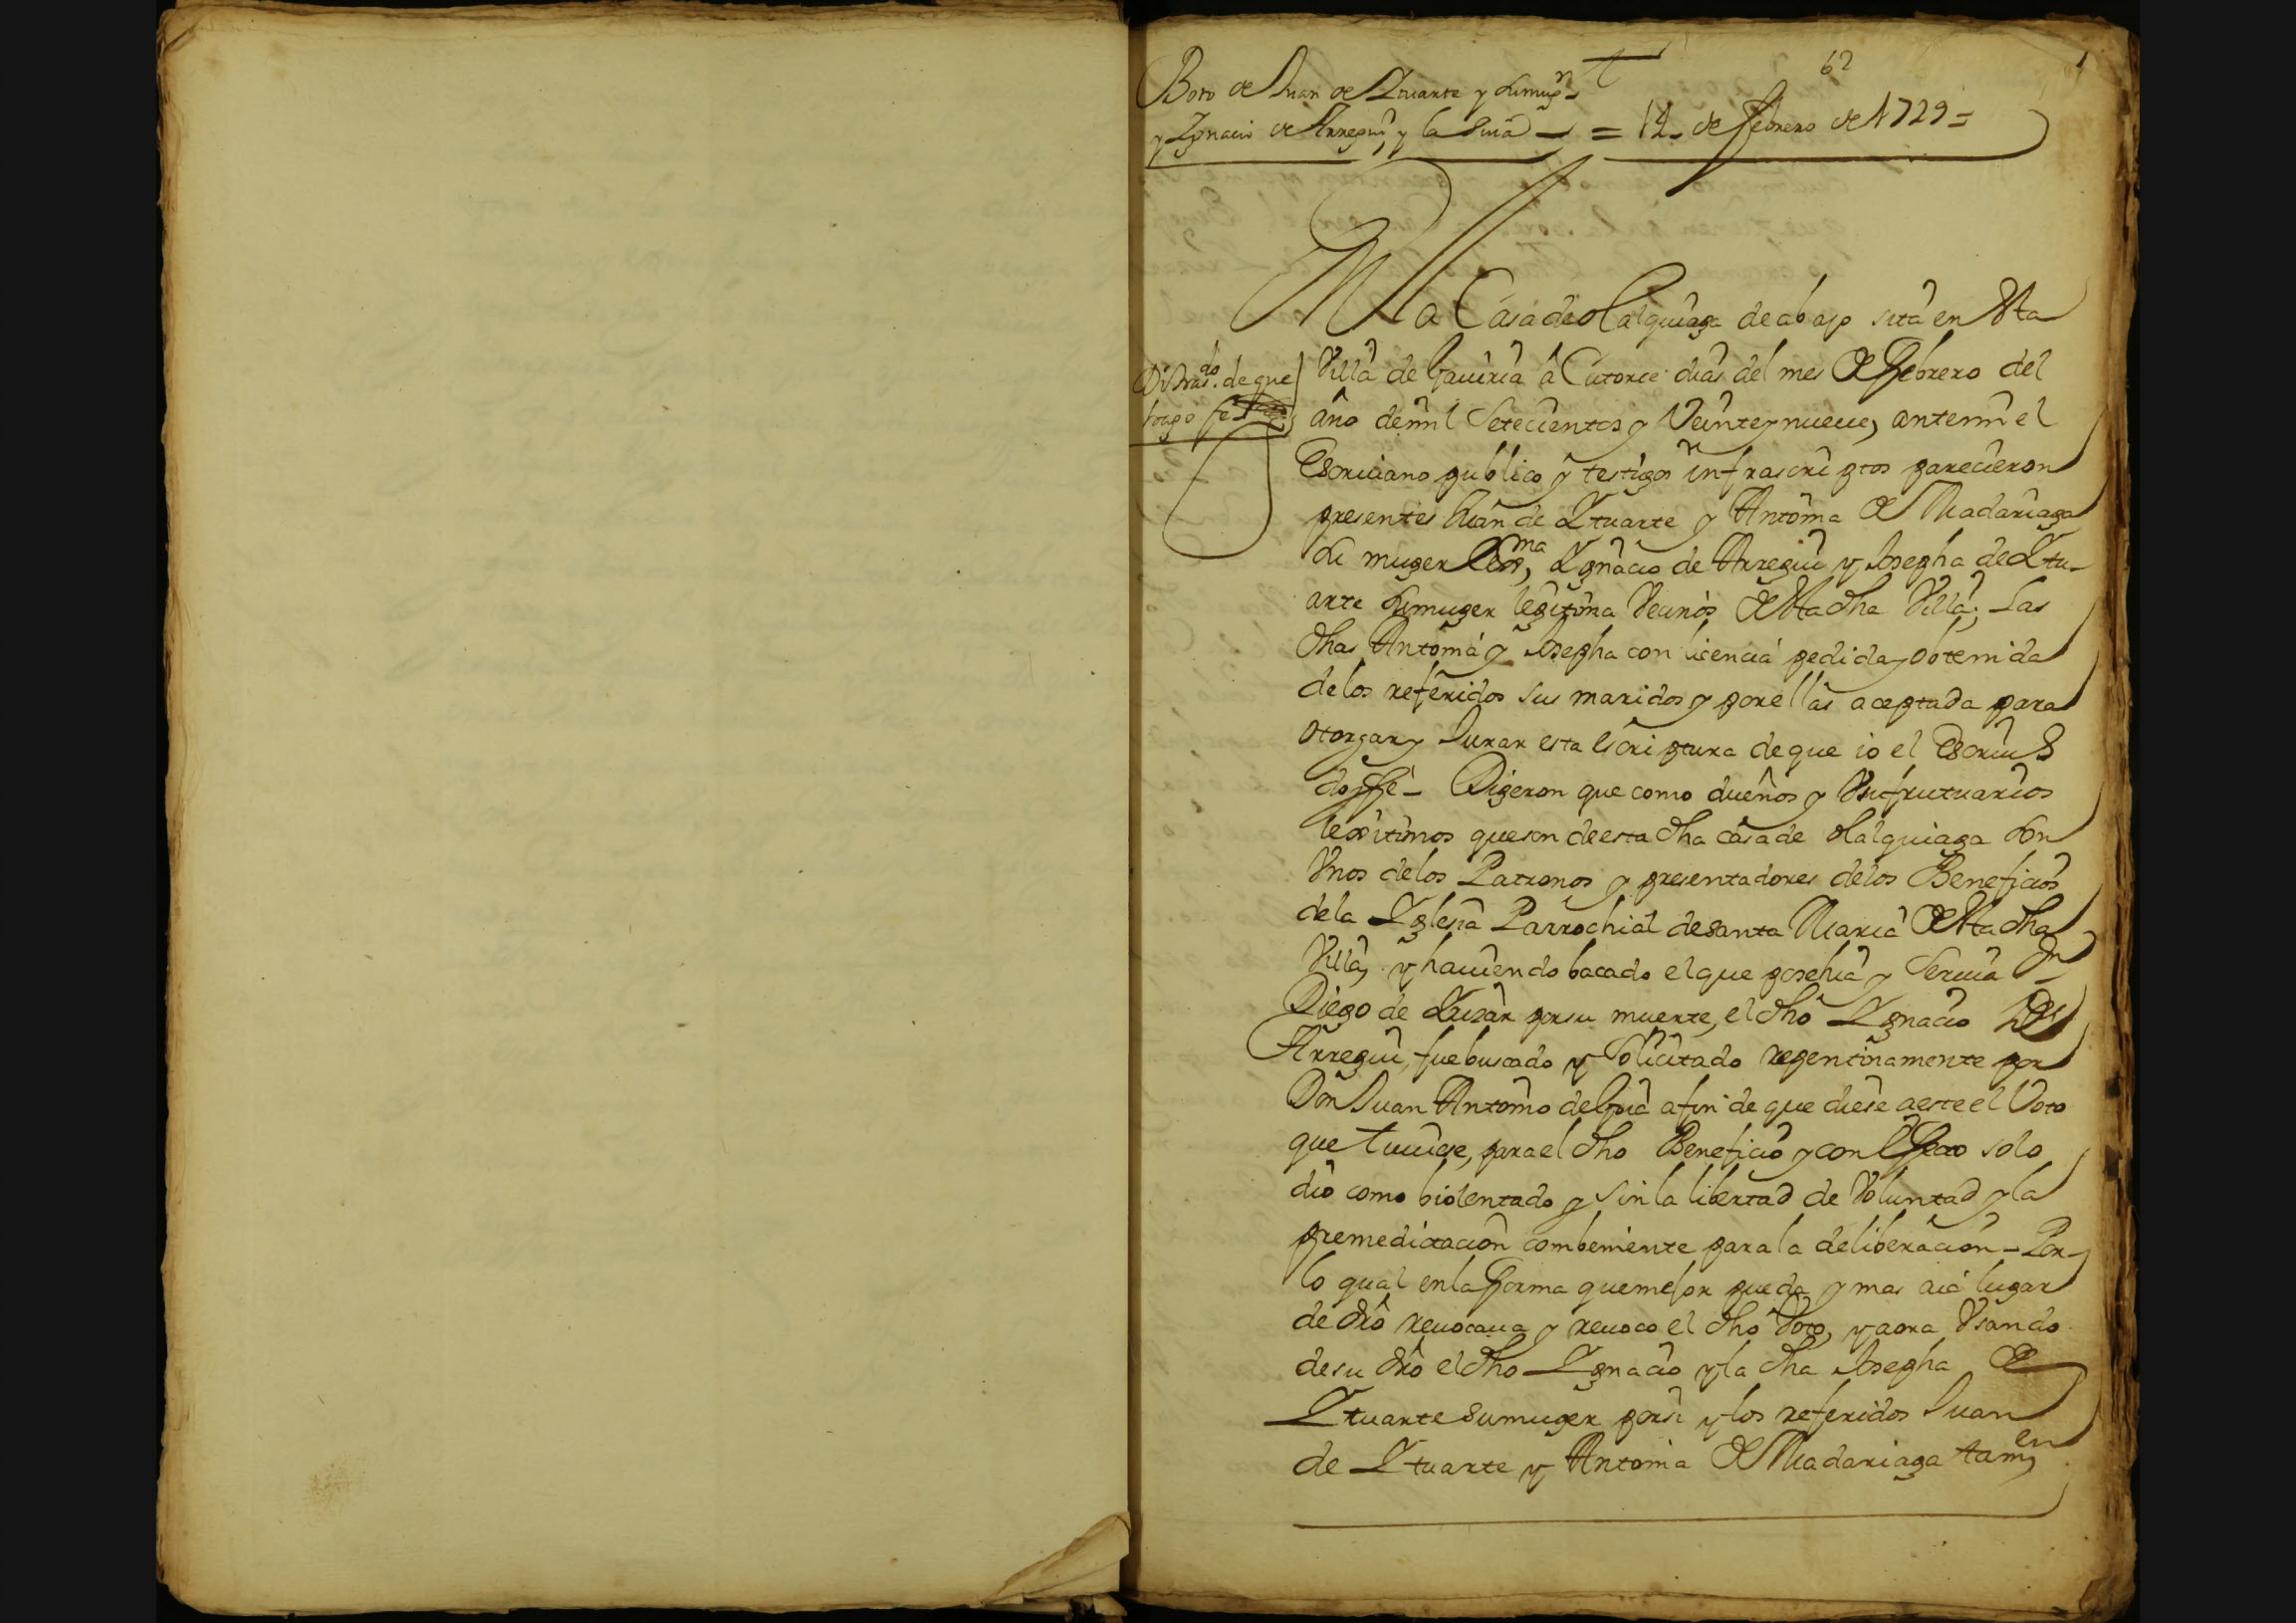 62
Boto de Juan de Ytuarte y su muger
y Ygnacio de Arregui y la suia = 14 de febrero de 1729 =
En la Casa de olalquiaga de abajo sita en esta
Villa de Gauiria a Catorce dias del mes de febrero del
año de mil Setecientos y Veinte y nueue, ante mi el
Escriuano publico y testigos infrascriptos parecieron
presentes Juan de Ytuarte y Antonia de Madariaga
su muger lexma, Ygnacio de Arregui y Josepha de Ytu-
arte su muger legitima Vecinos de esta dha Villa; Las
dhas Antonia y Josepha con licencia pedida y obtenida
de los referidos sus maridos y por ellas aceptada para
otorgar y Jurar esta escriptura de que io el Escriu
doy fé - Digeron que como dueños y Vsufrutuarios
lexitimos que son de esta dha casa de olalquiaga son
Vnos de los Patronos y presentadores de los Beneficios
de la Yglesia Parrochial de santa Maria de esta dha
Villa, y hauiendo bacado el que posehia y Seruia Dn
Diego de por su muerte, el dho Ygnacio de
Arregui, fue buscado y Solicitado repentinamente por
Don Juan Antonio de afin de que diese a este el Voto
que tuuiese, para el dho Beneficio y con efecto solo
dio como biolentado y sin la libertad de Voluntad y la
premeditacion combeniente para la deliberacion - Por
lo qual en la forma que mejor pueda y mas aia lugar
de dro reuocaua y reuoco el dho Voto, y aora Vsando
de su dro el dho Ygnacio y la dha Josepha de
Ytuarte su muger por si y los referidos Juan
de Ytuarte y Antonia de Madariaga tamen
de que
hago fe